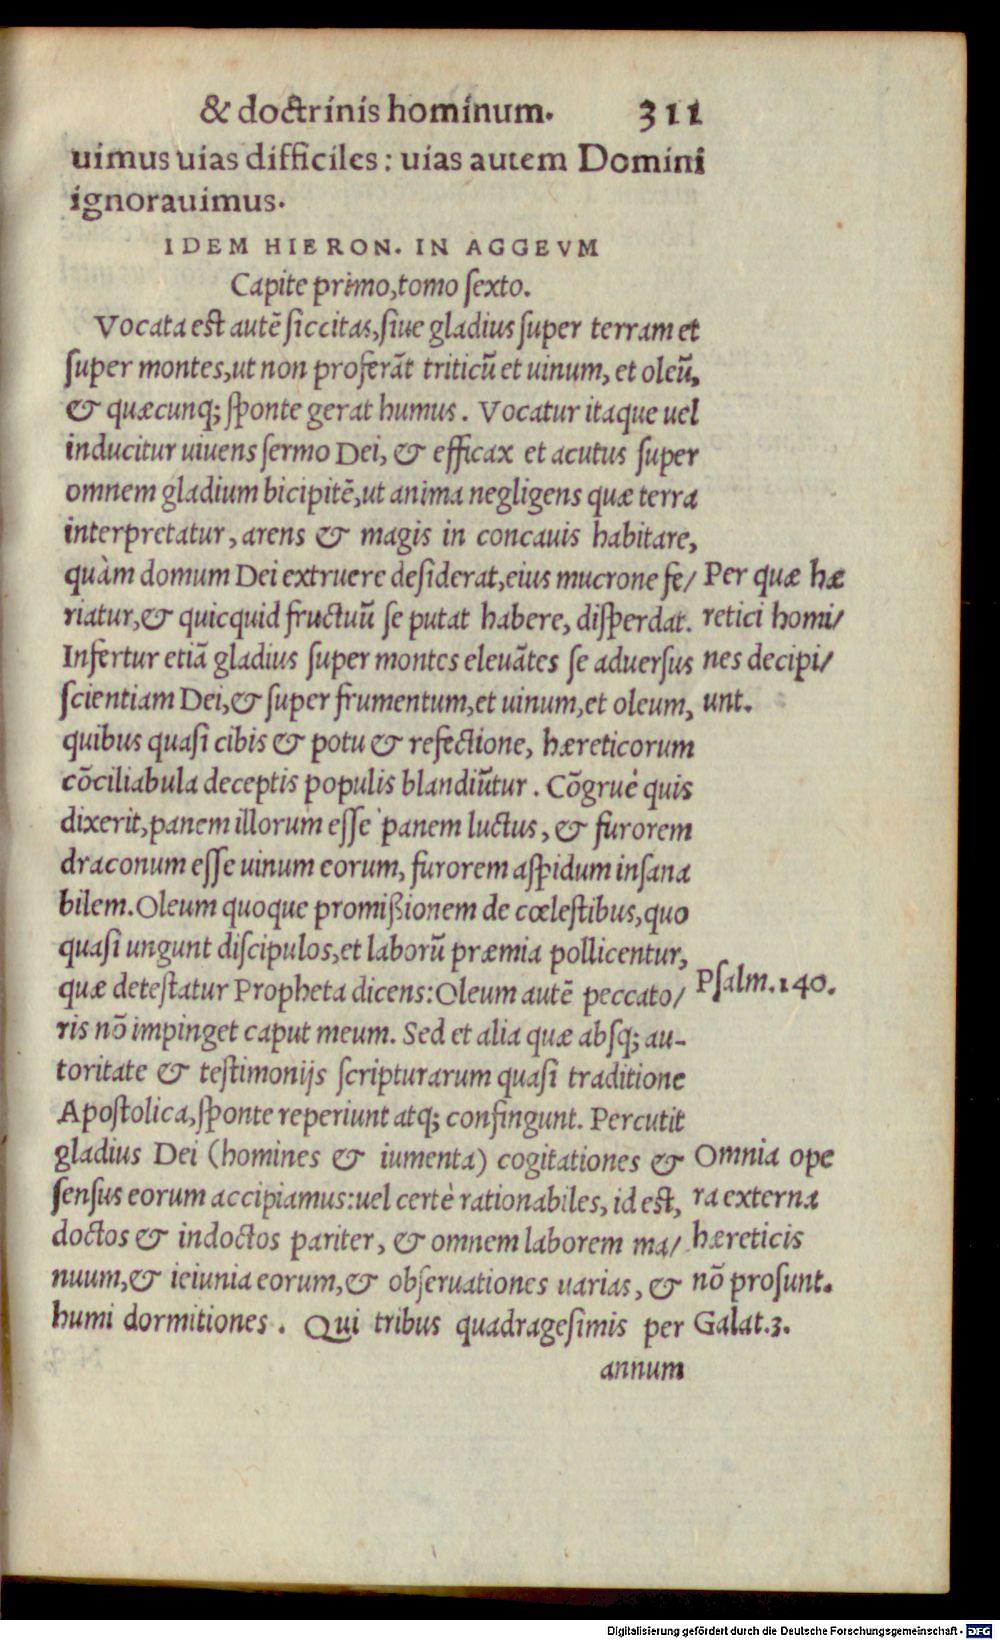 & doctrinis hominum. 311
uimus uias difficiles: uias autem Domini
ignorauimus.
IDEM HIERON. IN AGGEVM
Capite primo, tomo sexto.
Vocata est autē siccitas, siue gladius super terram et
super montes, ut non proferāt triticū et uinum, et oleū,
& quæcunq; sponte gerat humus. Vocatur itaque uel
inducitur uiuens sermo Dei, & efficax et acutus super
omnem gladium bicipitē, ut anima negligens quæ terra
interpretatur, arens & magis in concauis habitare,
quàm domum Dei extruere desiderat, eius mucrone fe/
riatur, & quicquid fructuū se putat habere, disperdat.
Infertur etiā gladius super montes eleuātes se aduersus
scientiam Dei, & super frumentum, et uinum, et oleum,
quibus quasi cibis & potu & refectione, hæreticorum
cōciliabula deceptis populis blandiūtur. Cōgruè quis
dixerit, panem illorum esse panem luctus, & furorem
draconum esse uinum eorum, furorem aspidum insana
bilem. Oleum quoque promißionem de cœlestibus, quo
quasi ungunt discipulos, et laborū præmia pollicentur,
quæ detestatur Propheta dicens: Oleum autē peccato/
ris nō impinget caput meum. Sed et alia quæ absq; au-
toritate & testimonijs scripturarum quasi traditione
Apostolica, sponte reperiunt atq; confingunt. Percutit
gladius Dei (homines & iumenta) cogitationes &
sensus eorum accipiamus: uel certè rationabiles, id est,
doctos & indoctos pariter, & omnem laborem ma/
nuum, & ieiunia eorum, & obseruationes uarias, &
humi dormitiones. Qui tribus quadragesimis per
annum
Per quæ hæ
retici homi/
nes decipi/
unt.
Psalm.140.
Omnia ope
ra externa
hæreticis
nō prosunt.
Galat.3.
Digitalisierung gefördert durch die Deutsche Forschungsgemeinschaft - DFG